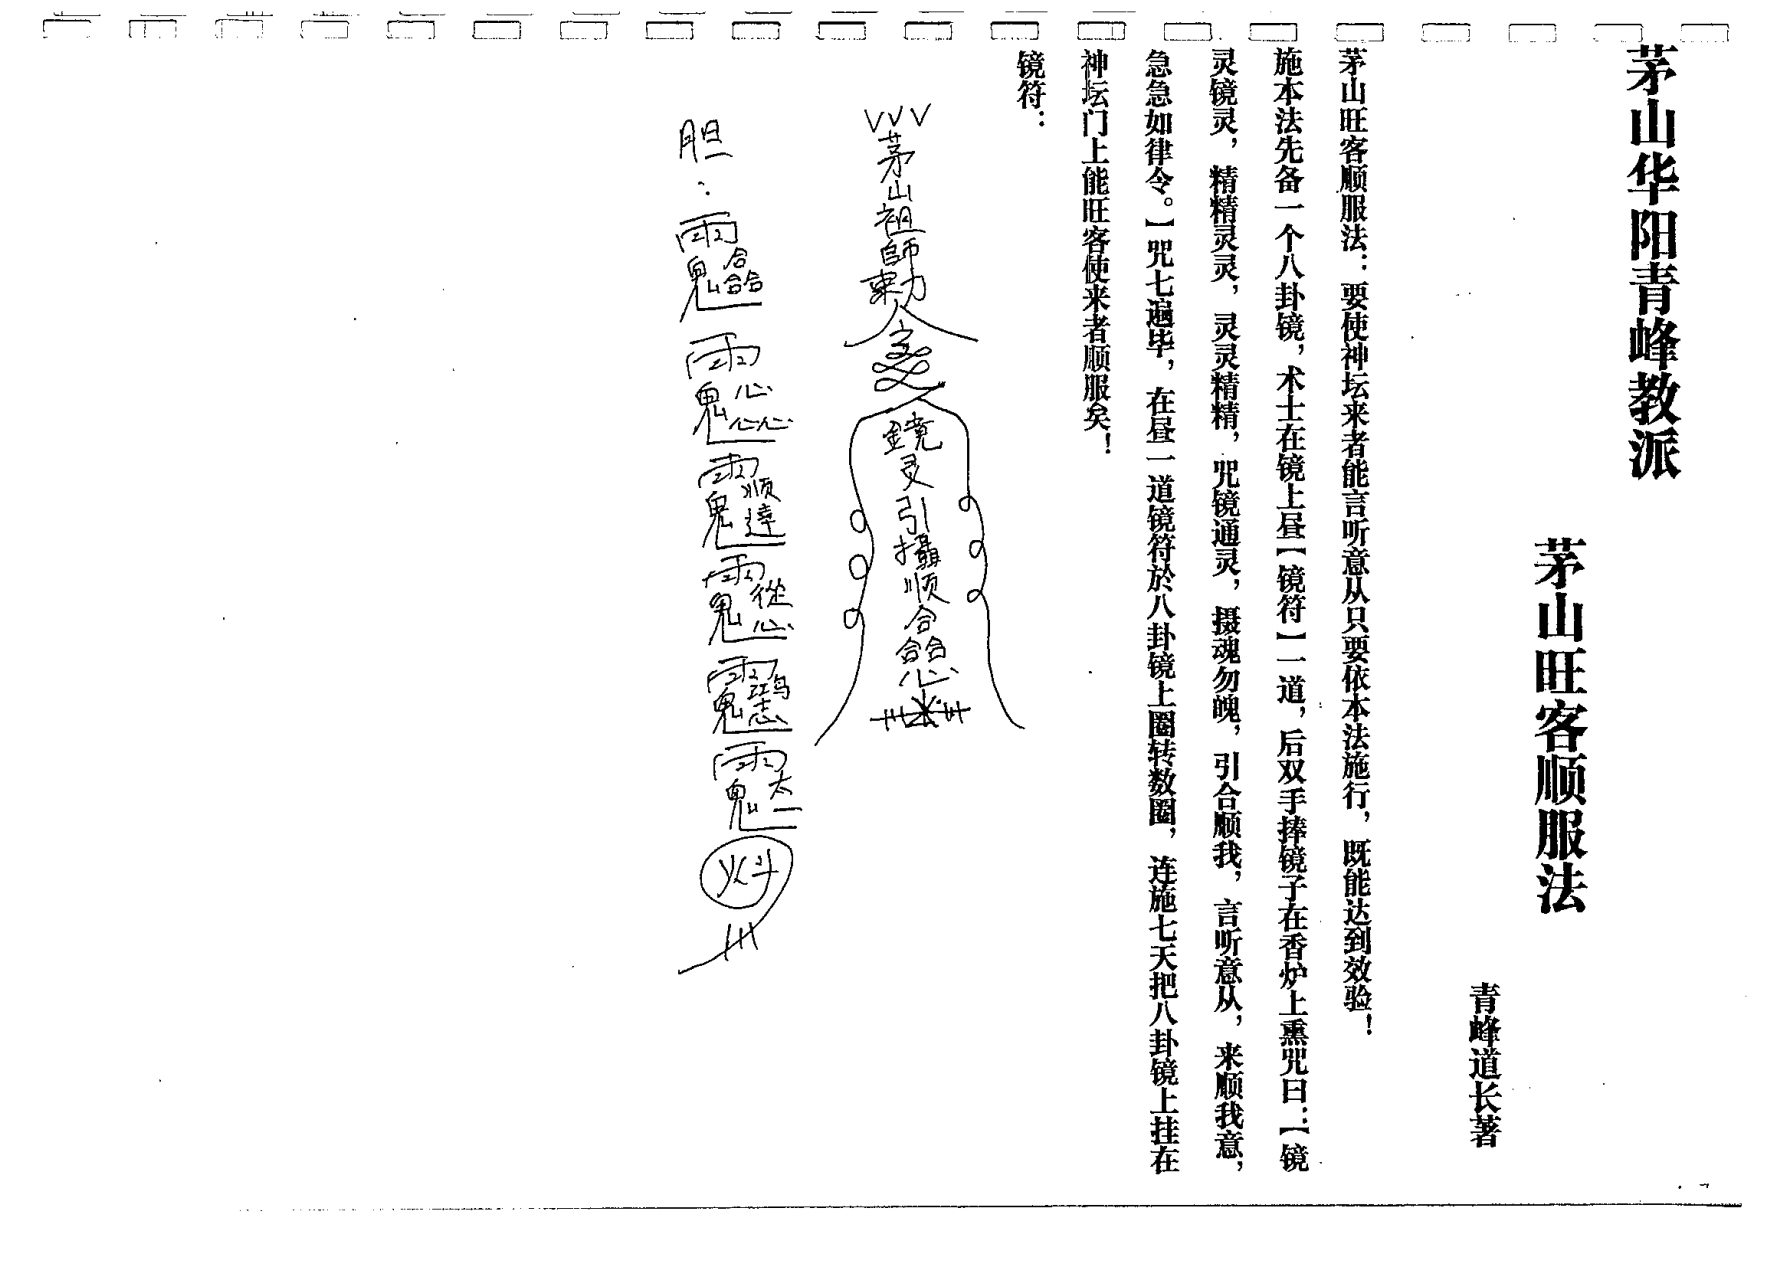 茅山华阳青峰教派
茅山旺客顺服法
青峰道长著
茅山旺客顺服法：要使神坛来者能言听意从只要依本法施行，既能达到效验！
施本法先备一个八卦镜，术士在镜上昼【镜符】一道，后双手捧镜子在香炉上熏咒曰：【镜
灵镜灵，精精灵灵，灵灵精精，咒镜通灵，摄魂勿魄，引合顺我，言听意从，来顺我意，
急急如律令。】咒七遍毕，在昼一道镜符於八卦镜上圈转数圈，连施七天把八卦镜上挂在
神坛门上能旺客使来者顺服矣！
镜符：
茅山祖師勅
鏡灵引攝顺合合合心
胆：